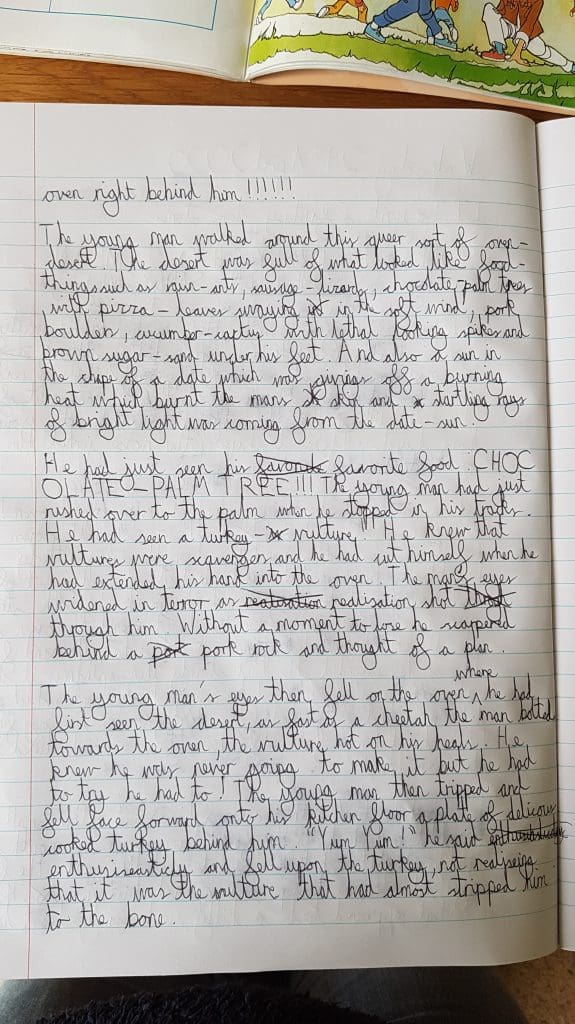 oven right behind him!!!!!!
The young man walked around this queer sort of oven-
desert. The desert was full of what looked like food-
things such as rain-ants, sausage-lizards, chocolate-palm trees
with pizza-leaves swaying in the soft wind, pork
boulders, cucumber-cactus with lethal looking spikes and
brown sugar-sand under his feet. And also a sun in
the shape of a date which was giving off a burning
heat which burnt the mans and startling rays
of bright light was coming from the date-sun.
He had just seen his favorite food: CHOC
OLATE-PALM TREE!!! The young man had just
rushed over to the palm when he stopped in his tracks.
He had seen a turkey-vulture! He knew that
vultures were scavengers and he had cut himself when he
had extended his hand into the oven. The man's eyes
widened in terror as realisation shot
through him. Without a moment to lose he scarpered
behind a pork rock and thought of a plan.
The young man's eyes then fell on the oven where he had
first seen the desert, as fast as a cheetah the man bolted
towards the oven, the vulture hot on his heals. He
knew he was never going to make it but he had
to try he had to! The young man then tripped and
fell face forward onto his kitchen floor a plate of delicous
cooked turkey behind him. "Yum Yum!" he said
and fell upon the turkey, not realiseing
that it was the vulture that had almost stripped him
to the bone.